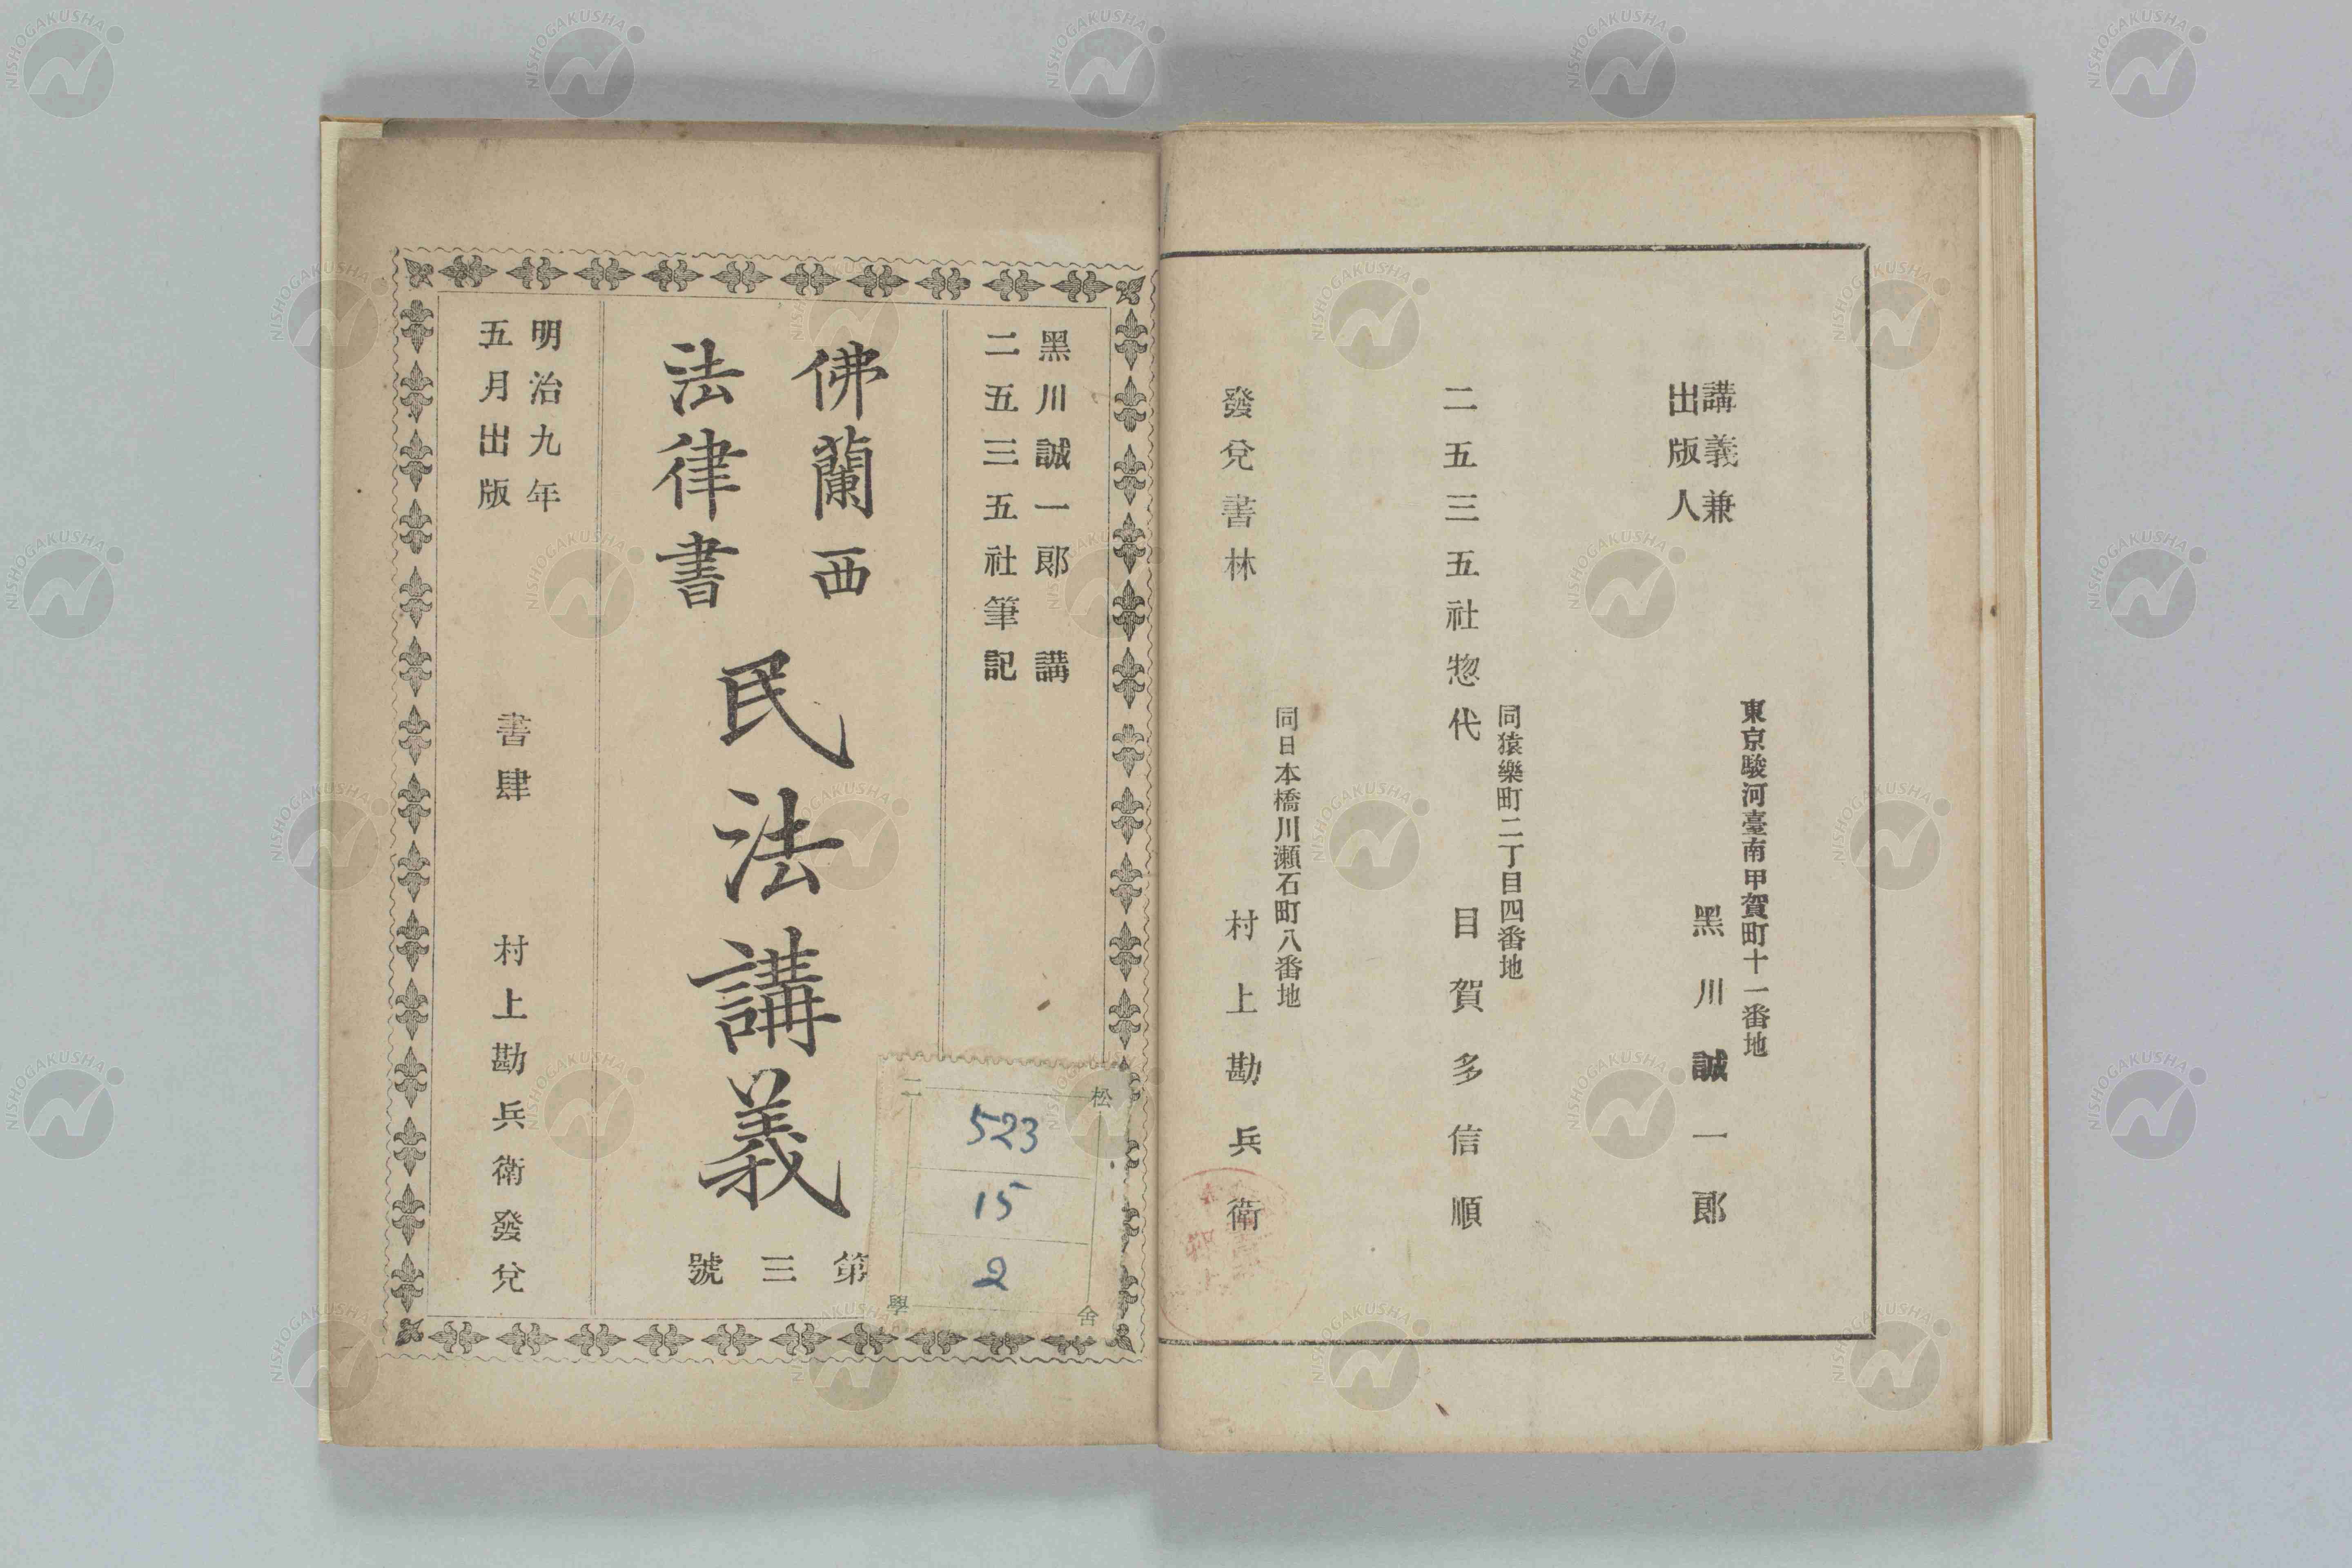 講義兼
出版人
東京駿河臺南甲賀町十一番地
黑川誠一郞
二五三五社惣代
同猿樂町二丁目四番地
目賀多信順
發兌書林
同日本橋川瀬石町八番地
村上勘兵衛
黑川誠一郞講
二五三五社筆記
佛蘭西
法律書
民法講義
第三號
明治九年
五月出版
書肆 村上勘兵衛發兌
二松學舍
523
15
2
NISHOGAKUSHA